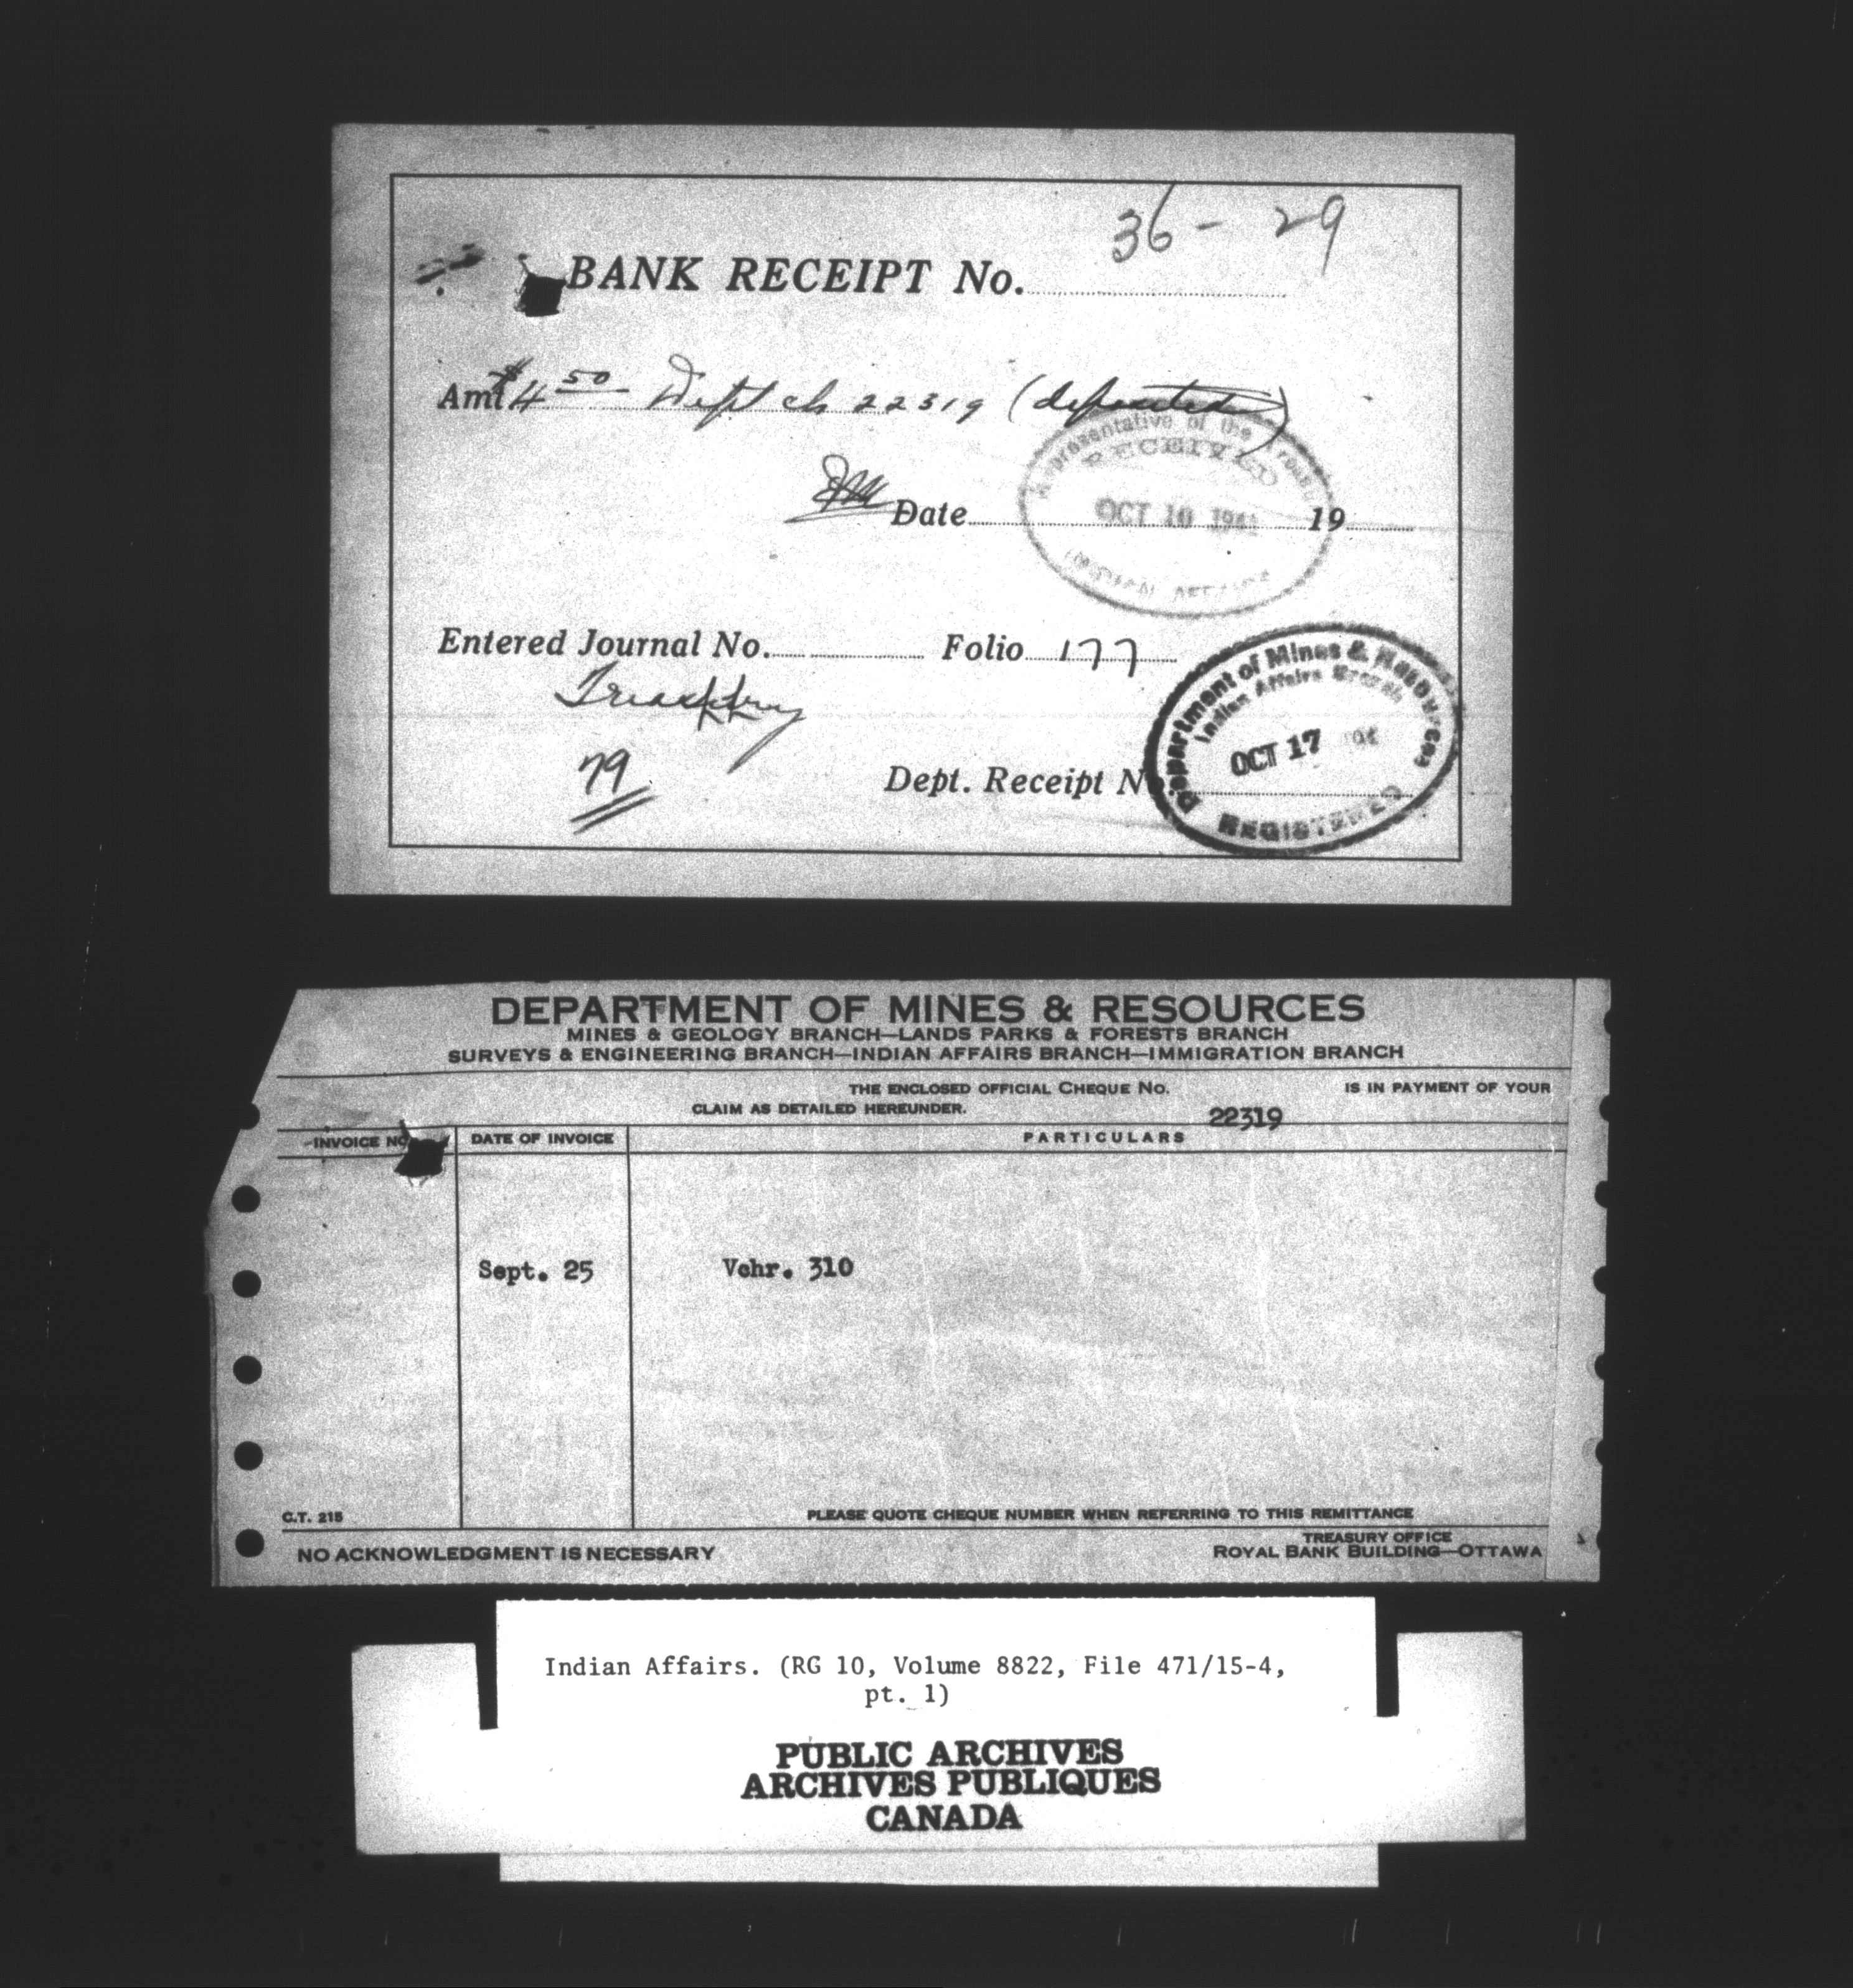 36 - 29
BANK RECEIPT No.
Amt $4 50 Dept ch 22319 (deposited)
Representative of the Treasury
RECEIVED
Date OCT 10 194 19
INDIAN AFFAIRS
Entered Journal No. Folio 177
Treasury
Department of Mines & Resources
Indian Affairs Branch
OCT 17 194
79
Dept. Receipt No.
REGISTERED
DEPARTMENT OF MINES & RESOURCES
MINES & GEOLOGY BRANCH—LANDS PARKS & FORESTS BRANCH
SURVEYS & ENGINEERING BRANCH—INDIAN AFFAIRS BRANCH—IMMIGRATION BRANCH
THE ENCLOSED OFFICIAL CHEQUE No. IS IN PAYMENT OF YOUR
CLAIM AS DETAILED HEREUNDER. 22319
INVOICE NO. DATE OF INVOICE PARTICULARS
Sept. 25 Vchr. 310
C.T. 215 PLEASE QUOTE CHEQUE NUMBER WHEN REFERRING TO THIS REMITTANCE
NO ACKNOWLEDGMENT IS NECESSARY
TREASURY OFFICE
ROYAL BANK BUILDING—OTTAWA
Indian Affairs. (RG 10, Volume 8822, File 471/15-4,
pt. 1)
PUBLIC ARCHIVES
ARCHIVES PUBLIQUES
CANADA